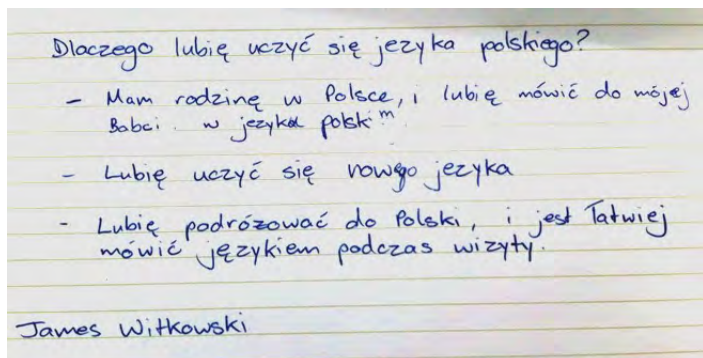 Dlaczego lubię uczyć się jezyka polskiego?
- Mam rodzinę w Polsce, i lubię mówić do mojej
Babci w jezyka polskim
- Lubię uczyć się nowgo jezyka
- Lubię podrózować do Polski, i jest Tatwiej
mówić językiem podczas wizyty.
James Witkowski